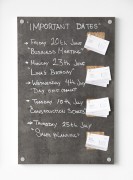 "IMPORTANT DATES"
→ FRIDAY 20TH JUNE
"BUSINESS MEETING"
→ MONDAY 23TH JUNE
"LUKE'S BIRTHDAY"
→ WEDNESDAY 4TH JULY
→ TUESDAY 10TH JULY
"CONSTRUCTION SCHOOL"
→ THURSDAY 25TH JULY